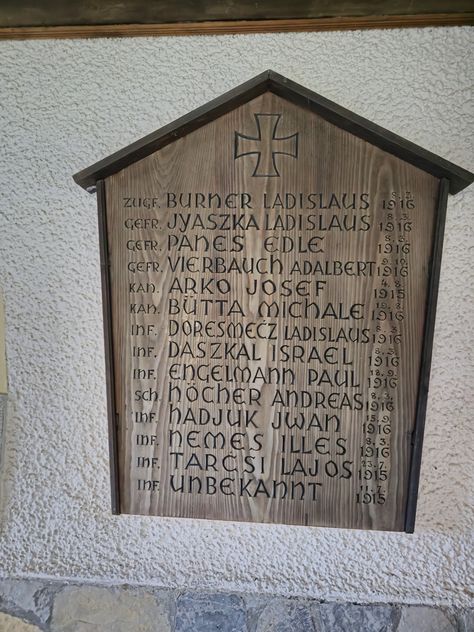 ZUGF. BURNER LADISLAUS 8.3. 1916
GEFR. JYASZKA LADISLAUS 8.3. 1916
GEFR. PANES EDLE 8.3. 1916
GEFR. VIERBAUCH ADALBERT 9.10. 1916
KAN. ARKO JOSEF 4.8. 1915
KAN. BÜTTA MICHALE 1916
INF. DORESMECZ LADISLAUS 8.3. 1916
INF. DASZKAL ISRAEL 8.3. 1916
INF. ENGELMANN PAUL 18.9. 1916
SCH. HÖCHER ANDREAS 8.3. 1916
INF. HADJUK JWAN 15.9. 1916
INF. NEMES ILLES 8.3. 1916
INF. TARCSI LAJOS 23.7. 1915
INF. UNBEKANNT 11.7. 1915